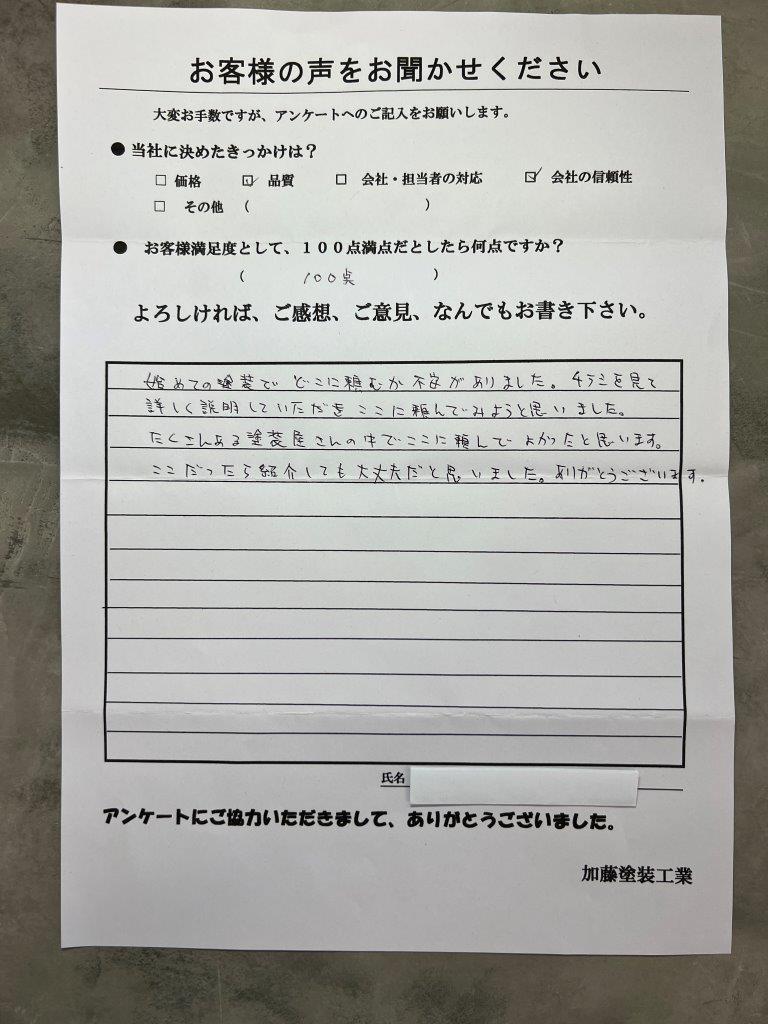 お客様の声をお聞かせください
大変お手数ですが、アンケートへのご記入をお願いします。
●当社に決めたきっかけは？
□ 価格 ☑ 品質 □ 会社・担当者の対応 ☑ 会社の信頼性
□ その他 （ ）
● お客様満足度として、１００点満点だとしたら何点ですか？
（ 100点 ）
よろしければ、ご感想、ご意見、なんでもお書き下さい。
始めての塗装で どこに頼むか 不安がありました。チラシを見て
詳しく説明していただき ここに頼んでみようと思いました。
たくさんある塗装屋さんの中でここに頼んで よかったと思います。
ここだったら紹介しても大丈夫だと思いました。ありがとうございます.
氏名
アンケートにご協力いただきまして、ありがとうございました。
加藤塗装工業